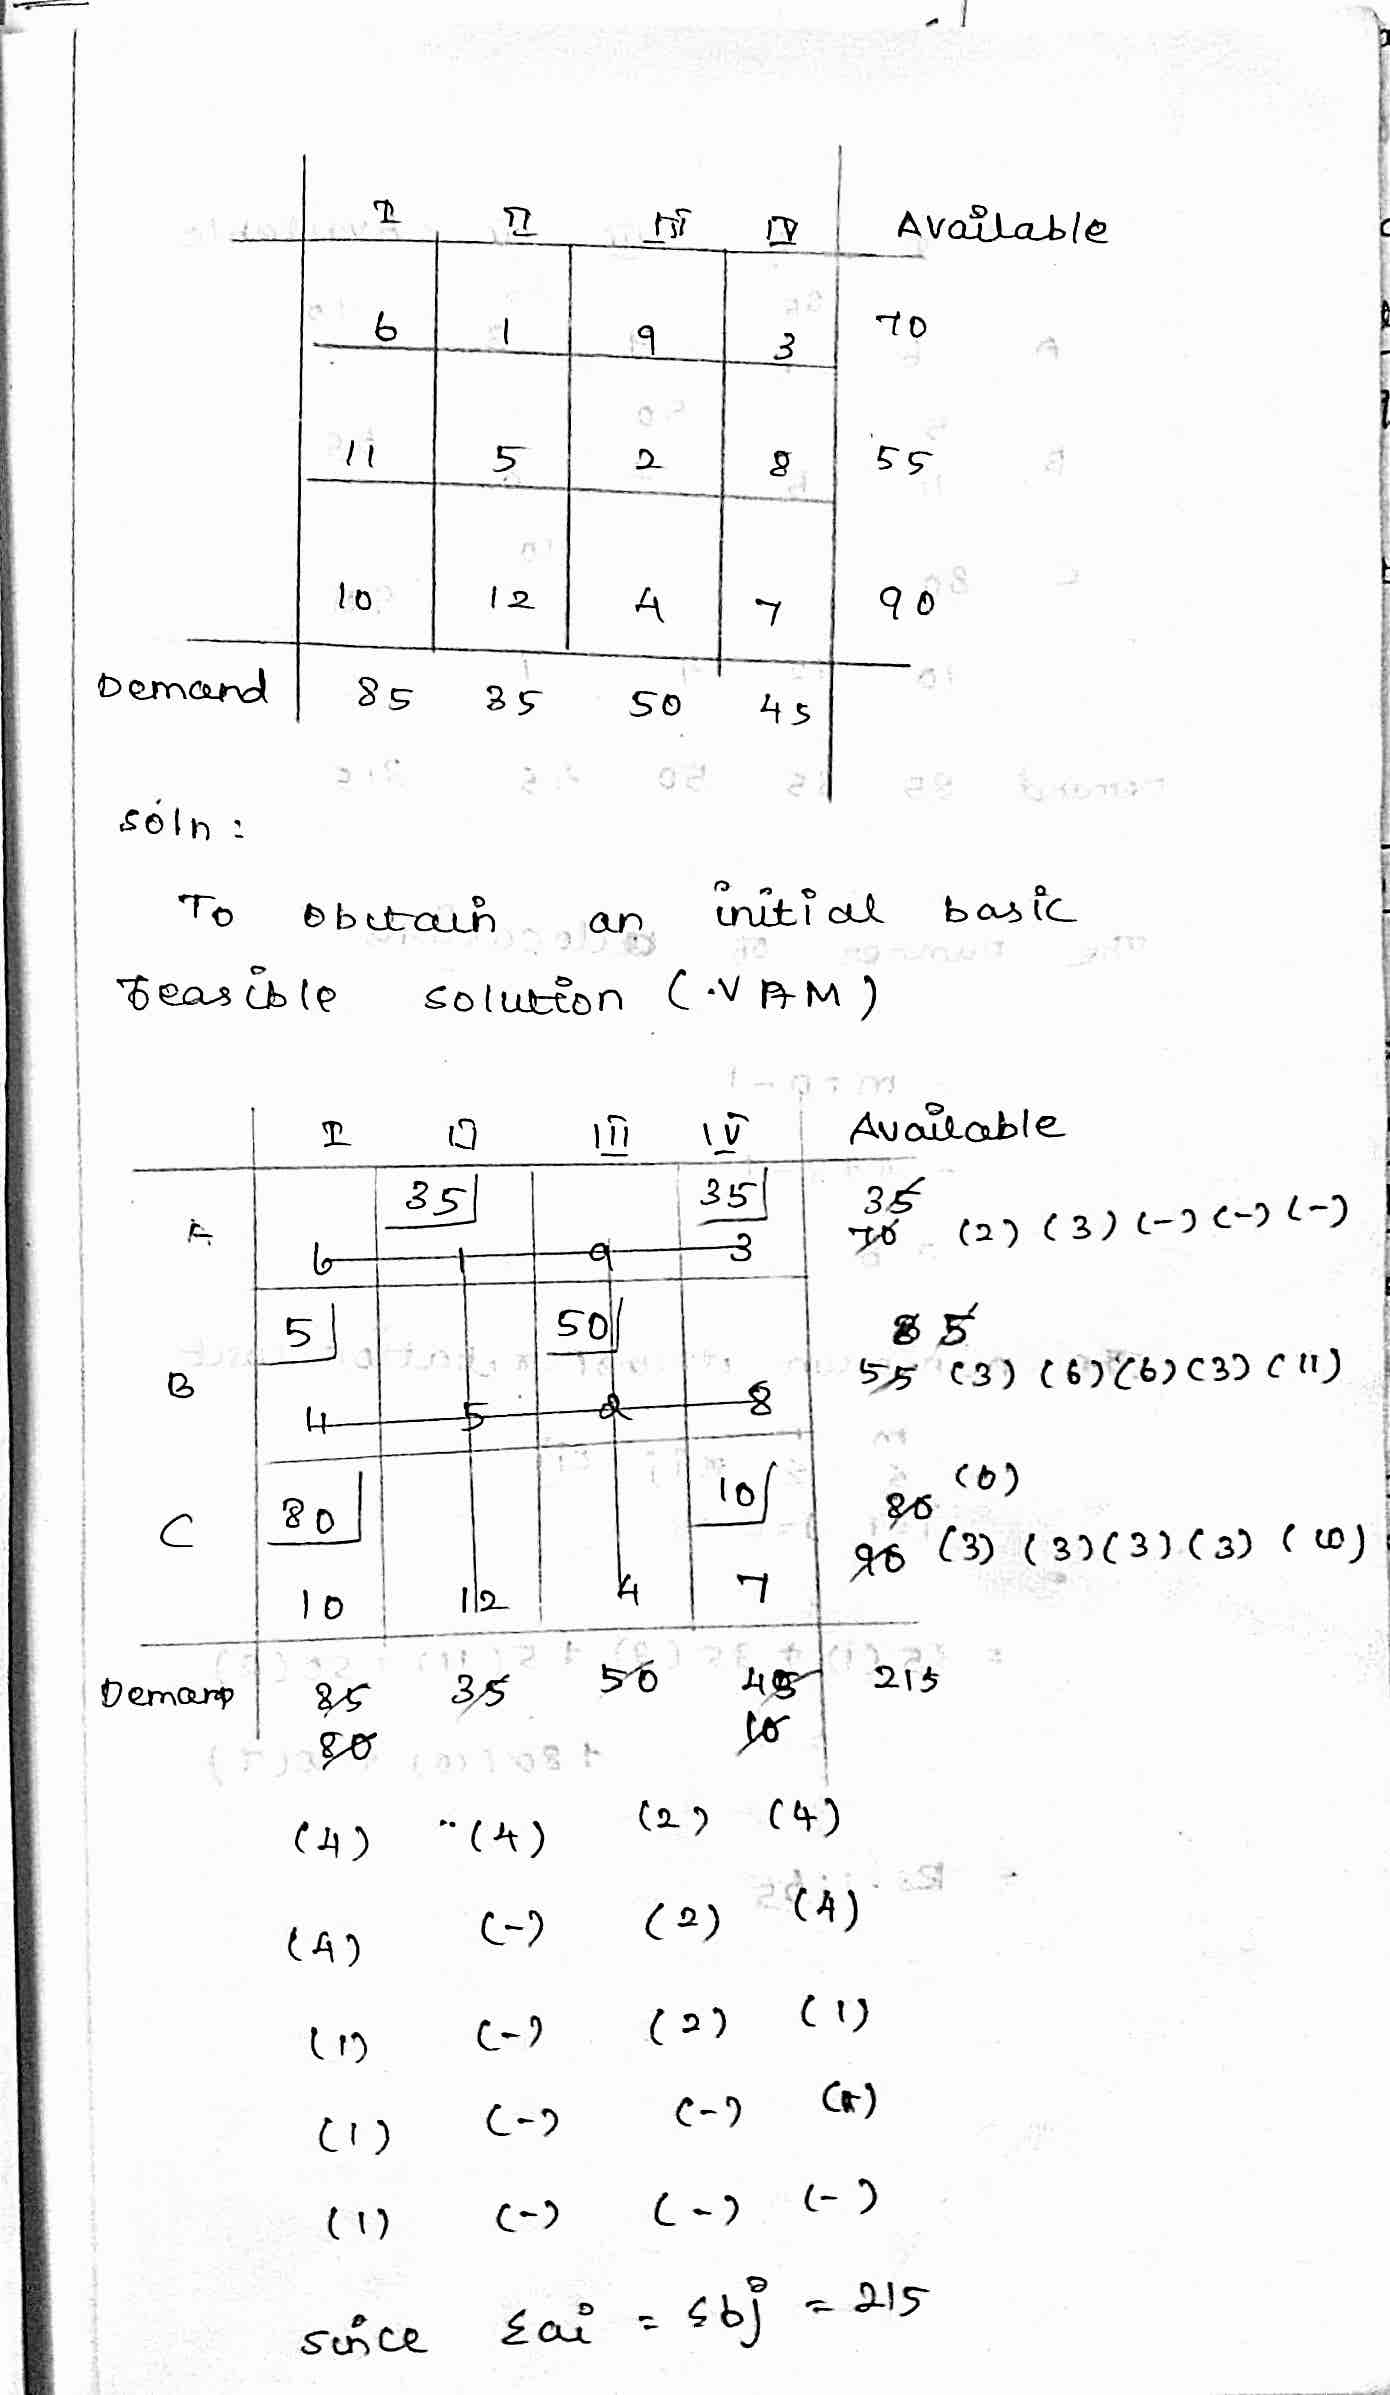 I II III IV Available
6 1 9 3 70
11 5 2 8 55
10 12 4 7 90
Demand 85 35 50 45
soln :
To obtain an initial basic
feasible solution (VAM)
I II III IV Available
35 35 35
A 6 1 9 3 70 (2) (3) (-) (-) (-)
5 50 5
B 4 5 2 8 55 (3) (6) (6) (3) (11)
80 10 80 (0)
C 10 12 4 7 90 (3) (3) (3) (3) (10)
Demand 85 35 50 45 215
80 10
(4) (4) (2) (4)
(4) (-) (2) (4)
(1) (-) (2) (1)
(1) (-) (-) (1)
(1) (-) (-) (-)
since Σai = Σbj = 215